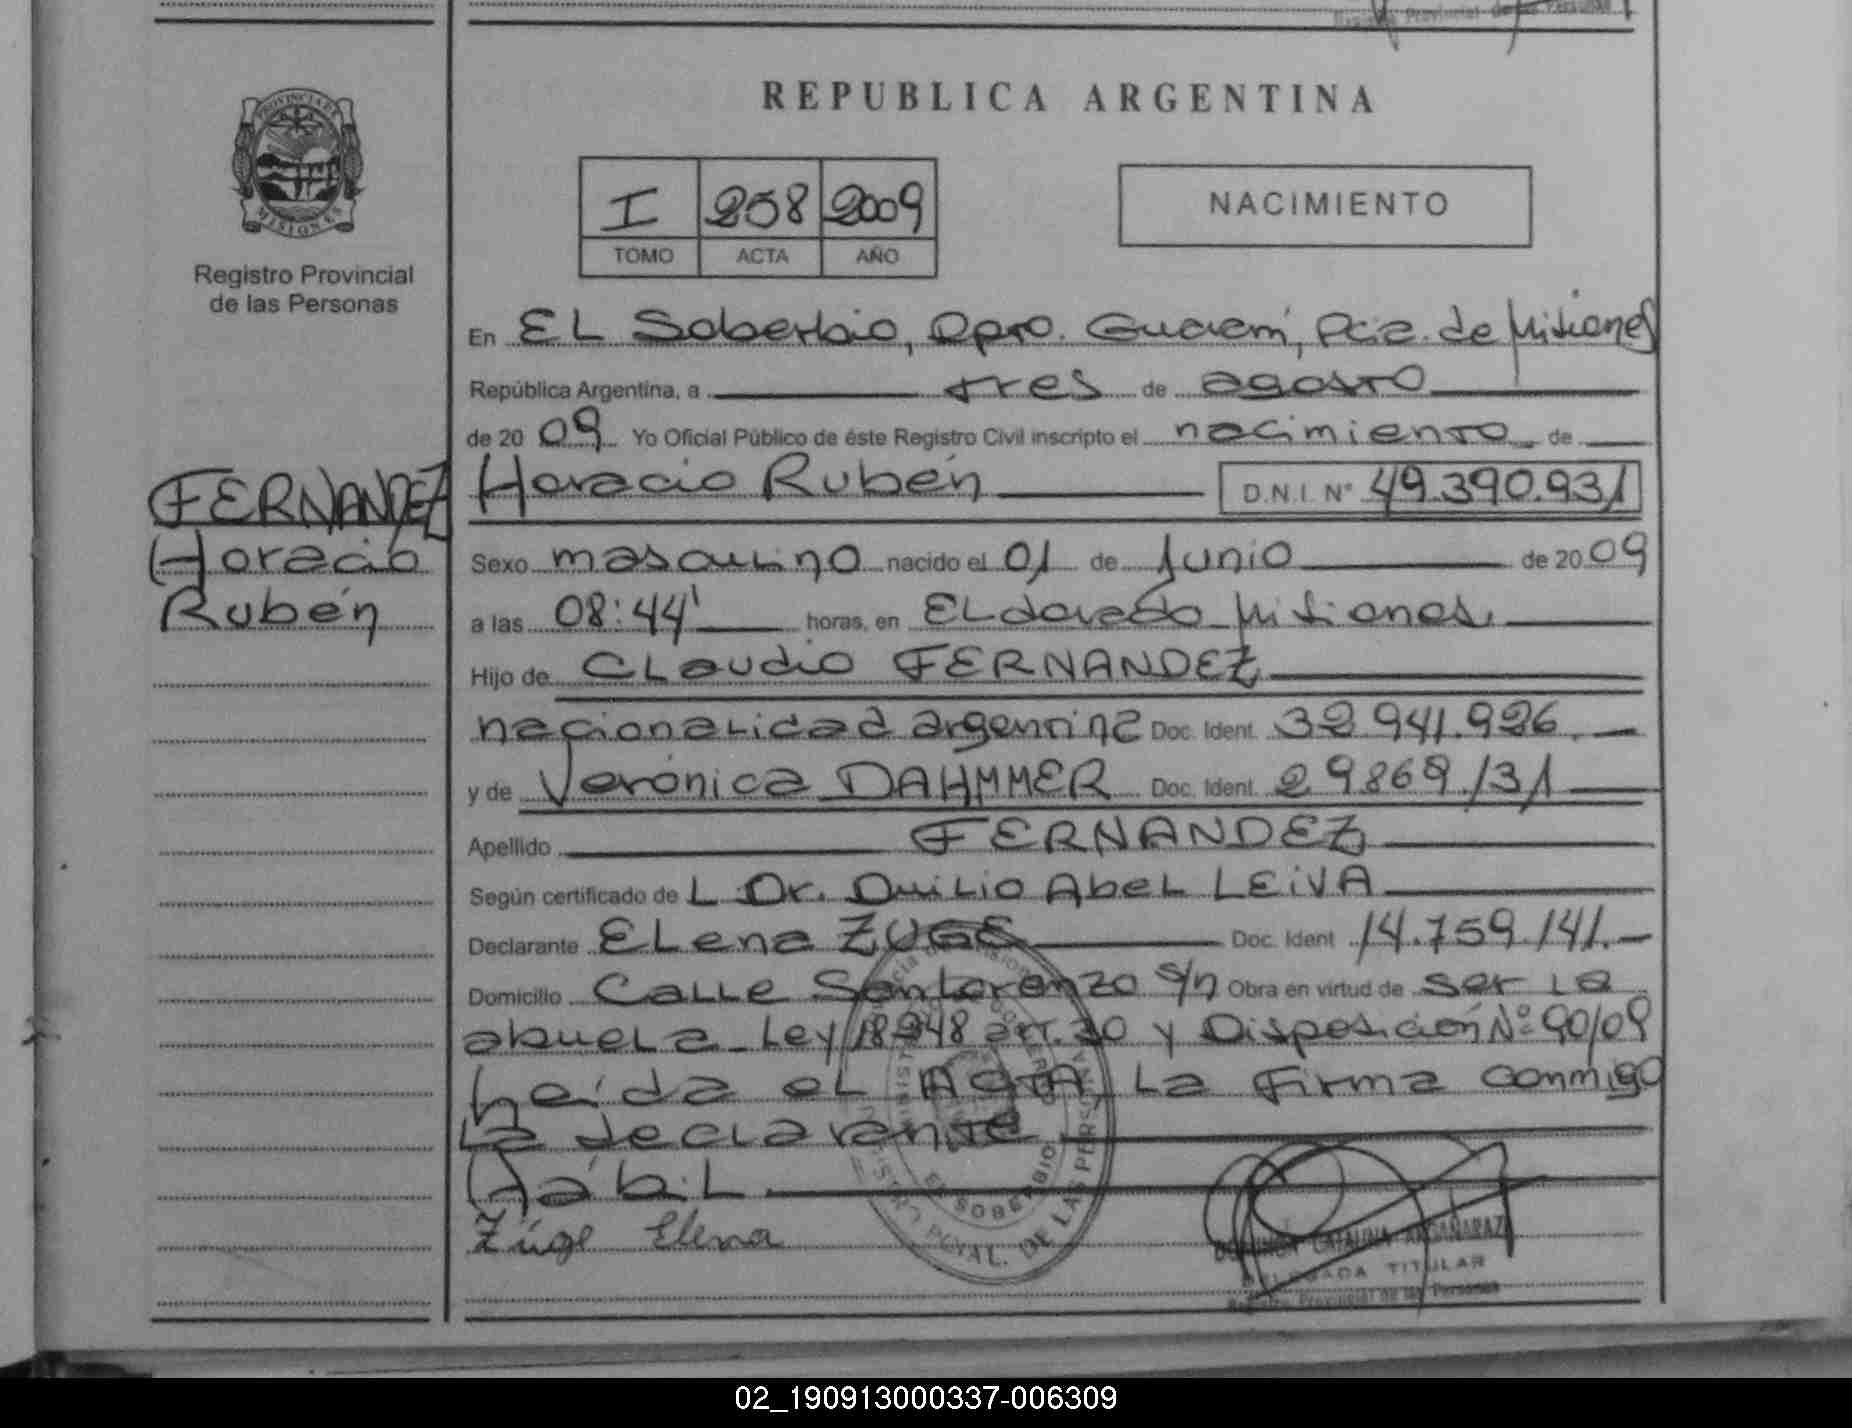 Registro Provincial de las Personas
PROVINCIA DE
MISIONES
Registro Provincial
de las Personas
REPUBLICA ARGENTINA
I 258 2009
TOMO ACTA AÑO
NACIMIENTO
En EL Soberbio, Dpto. Guaraní, Pcia. de Misiones
República Argentina, a tres de agosto
de 20 09 Yo Oficial Público de éste Registro Civil inscripto el nacimiento de
FERNANDEZ
Horacio
Rubén
Horacio Rubén D.N.I. Nº 49.390.931
Sexo masculino nacido el 01 de Junio de 20 09
a las 08:44' horas, en ELdorado Misiones.
Hijo de CLaudio FERNANDEZ
nacionaLidad argentina Doc. Ident. 32 941.926.
y de Verónica DAHMMER Doc. Ident. 29869.131
Apellido FERNANDEZ
Según certificado de L Dr. DuiLio AbeL LEiVA
Declarante ELena ZUGE Doc. Ident 14.759.141.-
Domicilio CaLLe San Lorenzo s/n Obra en virtud de ser La
abueLa_ Ley 18248 art. 30 y Disposición Nº 90/09
Leída eL ACTA, La firma conmigo
La declarante
HábiL
Züge Elena
EL SOBERBIO
DE LAS PERSONAS
CATALINA
DELEGADA TITULAR
Registro Provincial de las Personas
02_190913000337-006309